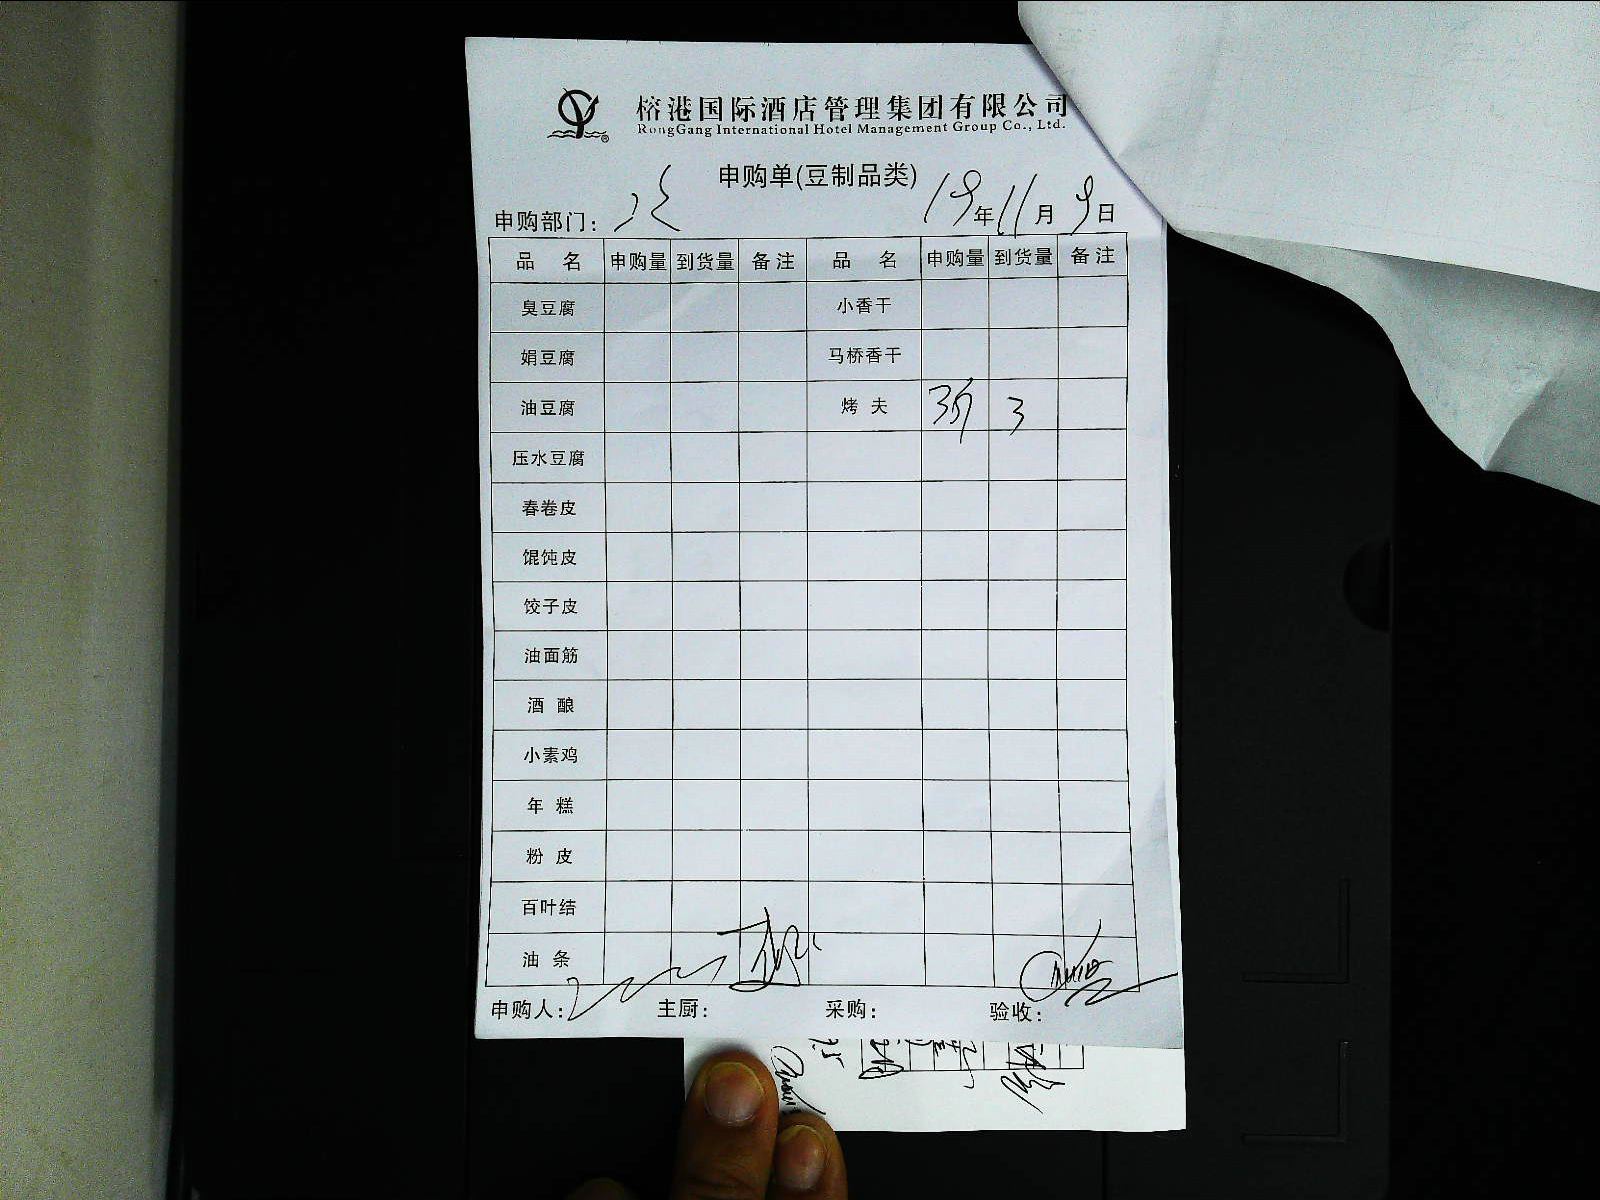 榕港国际酒店管理集团有限公司
RongGang International Hotel Management Group Co., Ltd.
申购单(豆制品类)
申购部门: 19年11月9日
品 名 申购量 到货量 备注 品 名 申购量 到货量 备注
臭豆腐 小香干
娟豆腐 马桥香干
油豆腐 烤 夫 3斤 3
压水豆腐
春卷皮
馄饨皮
饺子皮
油面筋
酒 酿
小素鸡
年 糕
粉 皮
百叶结
油 条
申购人: 主厨: 采购: 验收: